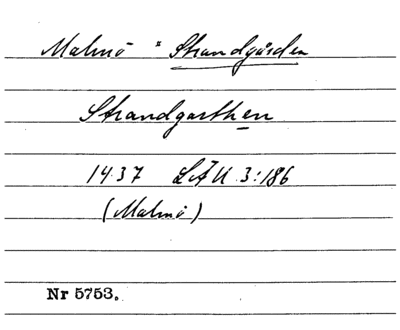 Malmö × Strandgården
Strandgarthen
1437 LÄU 3:186
(Malmö)
Nr 5753.